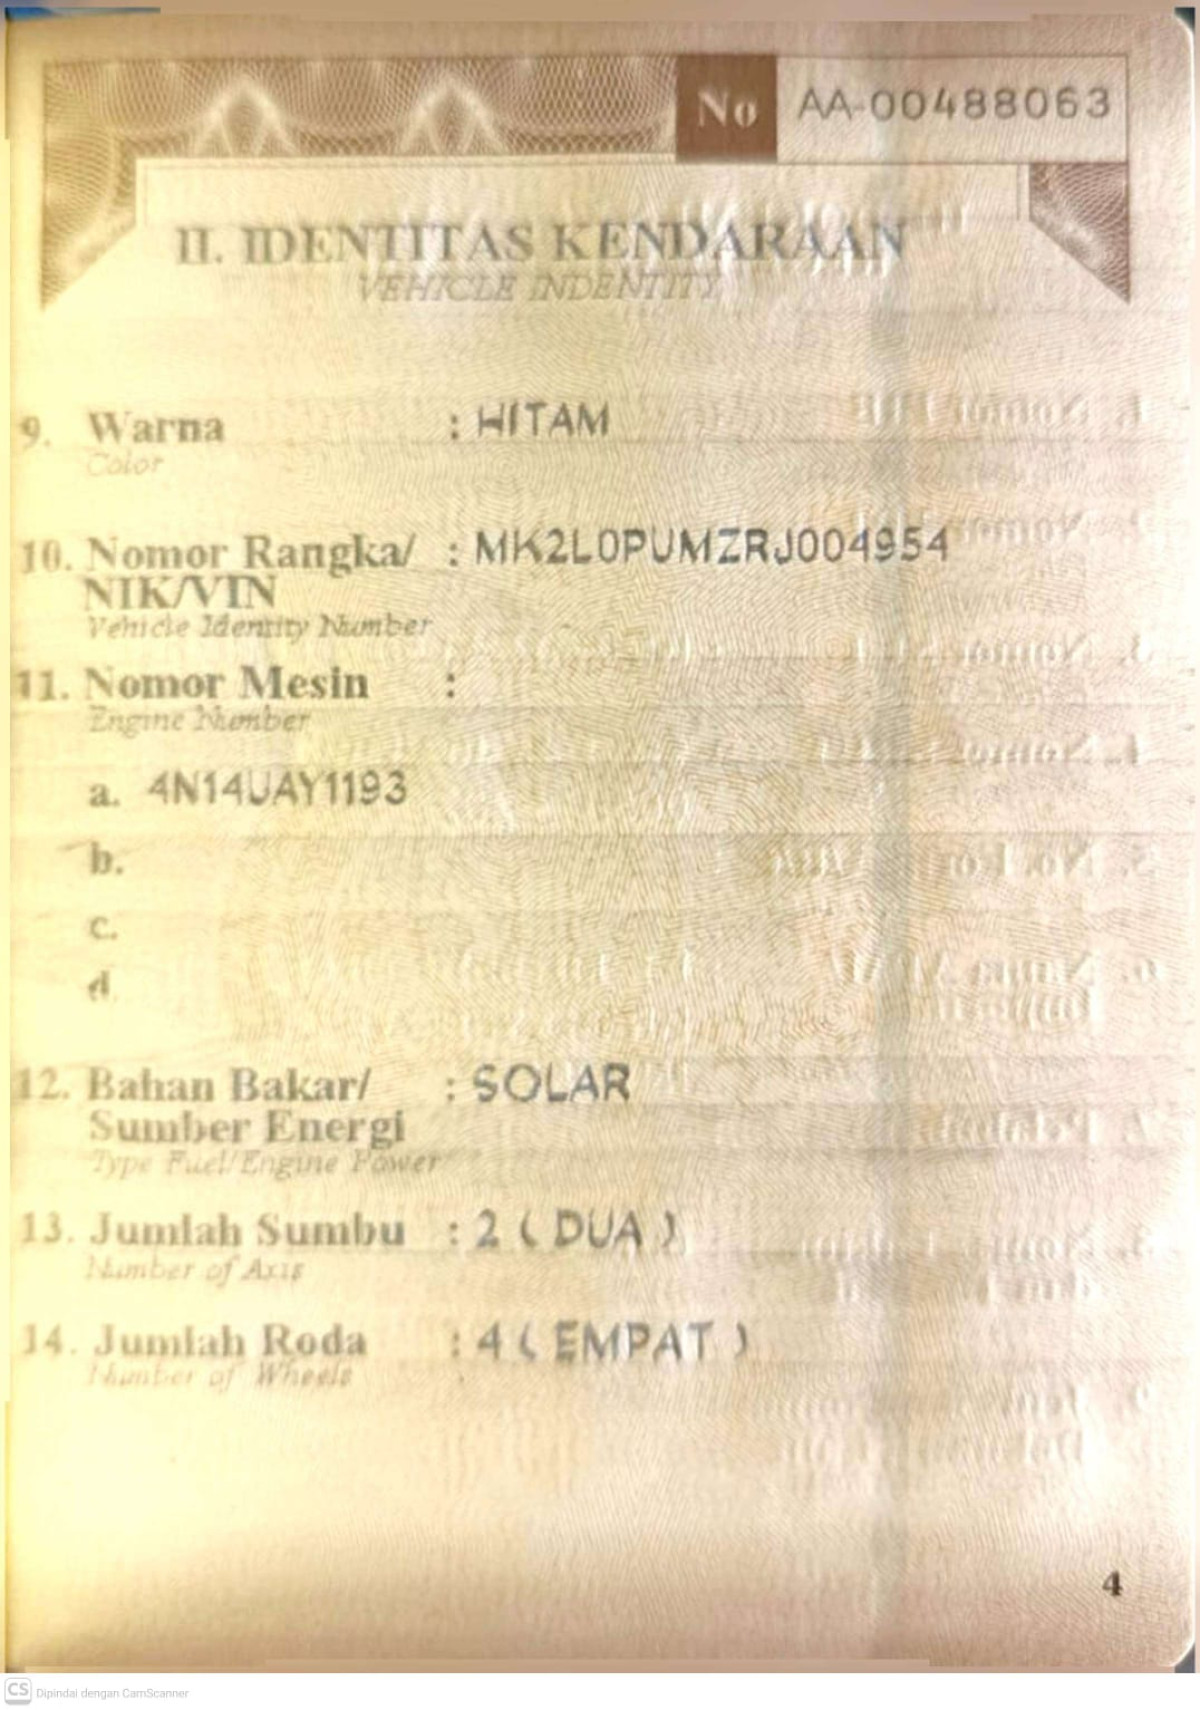 No AA-00488063
II. IDENTITAS KENDARAAN
VEHICLE INDENTITY
9. Warna : HITAM
Color
10. Nomor Rangka/ : MK2L0PUMZRJ004954
NIK/VIN
Vehicle Identity Number
11. Nomor Mesin :
Engine Number
a. 4N14UAY1193
b.
c.
d.
12. Bahan Bakar/ : SOLAR
Sumber Energi
Type Fuel/Engine Power
13. Jumlah Sumbu : 2 ( DUA )
Number of Axis
14. Jumlah Roda : 4 ( EMPAT )
Number of Wheels
4
CS Dipindai dengan CamScanner